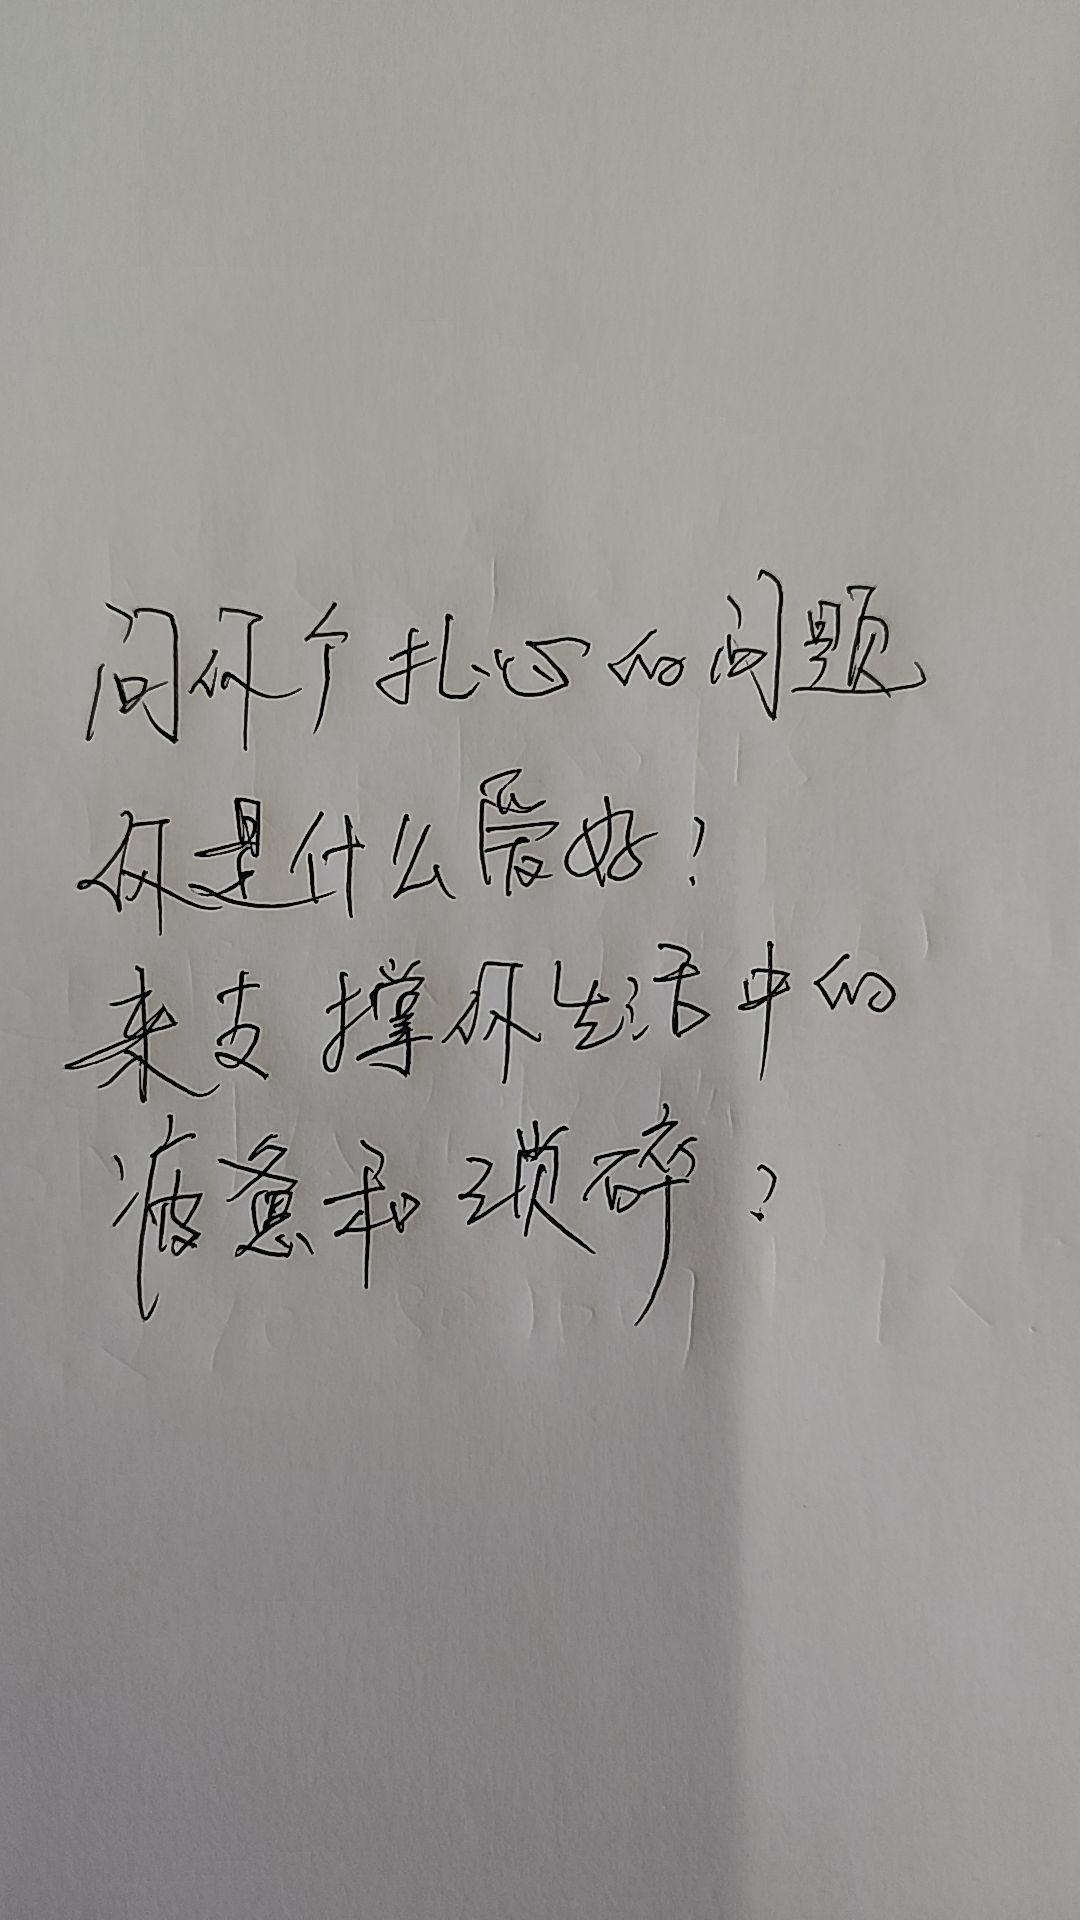 问你个扎心的问题
你是什么爱好？
来支撑你生活中的
疲惫和琐碎？